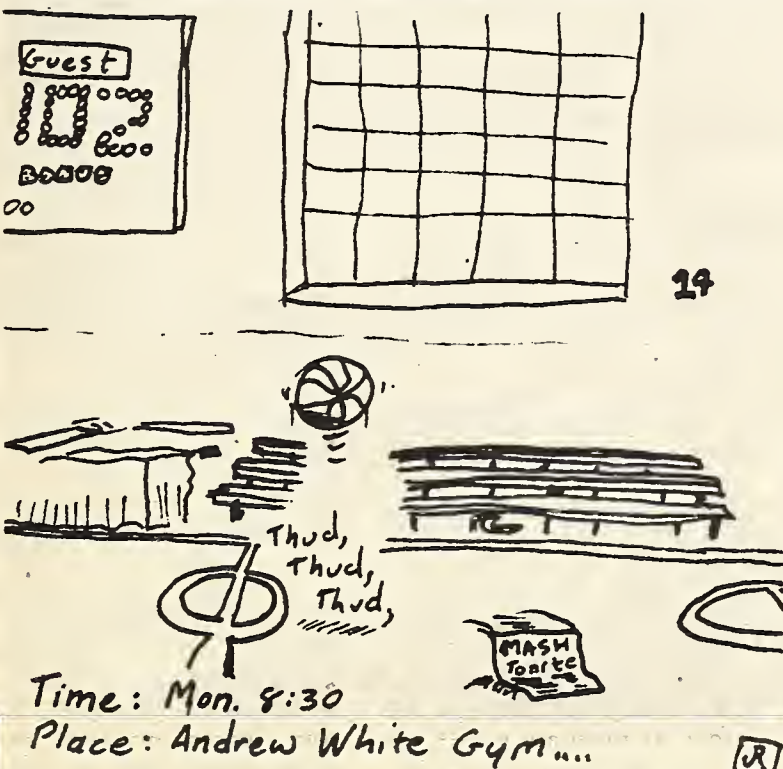 Guest
102
BONUS
00
Thud,
Thud,
Thud,
MASH
Tonite
Time: Mon. 8:30
Place: Andrew White Gym....
R